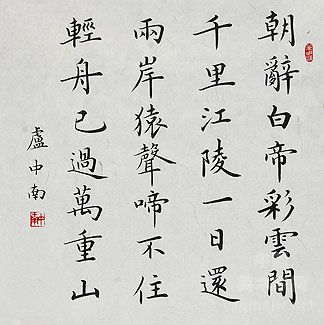 朝辭白帝彩雲間
千里江陵一日還
兩岸猿聲啼不住
輕舟已過萬重山
盧中南